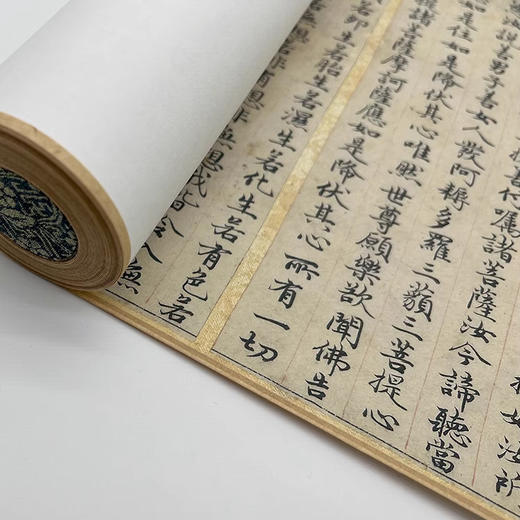 如汝所
善付囑諸菩薩汝今諦聽當
說善男子善女人發阿耨多羅三藐三菩提心
如是住如是降伏其心唯然世尊願樂欲聞佛告
諸菩薩摩訶薩應如是降伏其心所有一切
卵生若胎生若濕生若化生若有色若
無想若非有想非無想我皆令入無